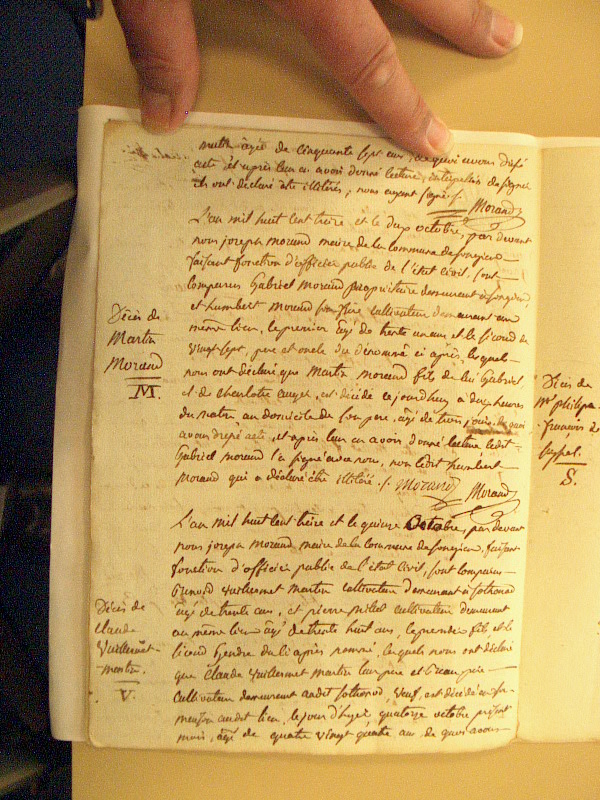 âgée de cinquante sept ans, de quoi avons dressé
acte et après leur en avoir donné lecture, interpellés de signer
ils ont déclaré être illitérés; nous ayant signé ./.
Morand
L'an mil huit cent treize et le deux octobre, par devant
nous joseph morand maire de la commune de songieu
faisant fonction d'officier public de l'état civil, sont
comparus Gabriel Morand propriétaire demeurant à songieu,
et humbert Morand son frère cultivateur demeurant au
même lieu, le premier âgé de trente un ans et le second de
vingt sept, pere et oncle du dénommé ci après, lesquels
nous ont déclaré que Martin morand fils de lui Gabriel,
et de charlotte, est décédé ce jourd'huy à deux heures
du matin au domicile de son pere, âgé de trois jours. de quoi
avons dressé acte, et après leur en avoir donné lecture ledit
Gabriel morand l'a signé avec nous, non ledit humbert
Morand qui a déclaré être illitéré ./. Morand Morand
L'an mil huit cent treize et le quinze Octobre, par devant
nous joseph Morand, maire de la commune de songieu, faisant
fonction d'officier public de l'état civil, sont comparus
vuillermet martin cultivateur demeurant à sothonod
âgé de trente ans, et pierre cultivateur demeurant
au même lieu âgé de trente huit ans, le premier fils, et le
second gendre du ci après nommé, lesquels nous ont déclaré
que Claude Vuillermet martin leur père et beau père
cultivateur demeurant audit sothonod, veuf, est décédé en sa
maison audit lieu, le jour d'hyer quatorze octobre présent
mois, âgé de quatre vingt quatre ans, de quoi avons
Décès de
Martin
Morand
M.
Décès de
claude
Vuillermet
martin.
V.
Décès de
Mr philipe
françois de
seyssel.
S.